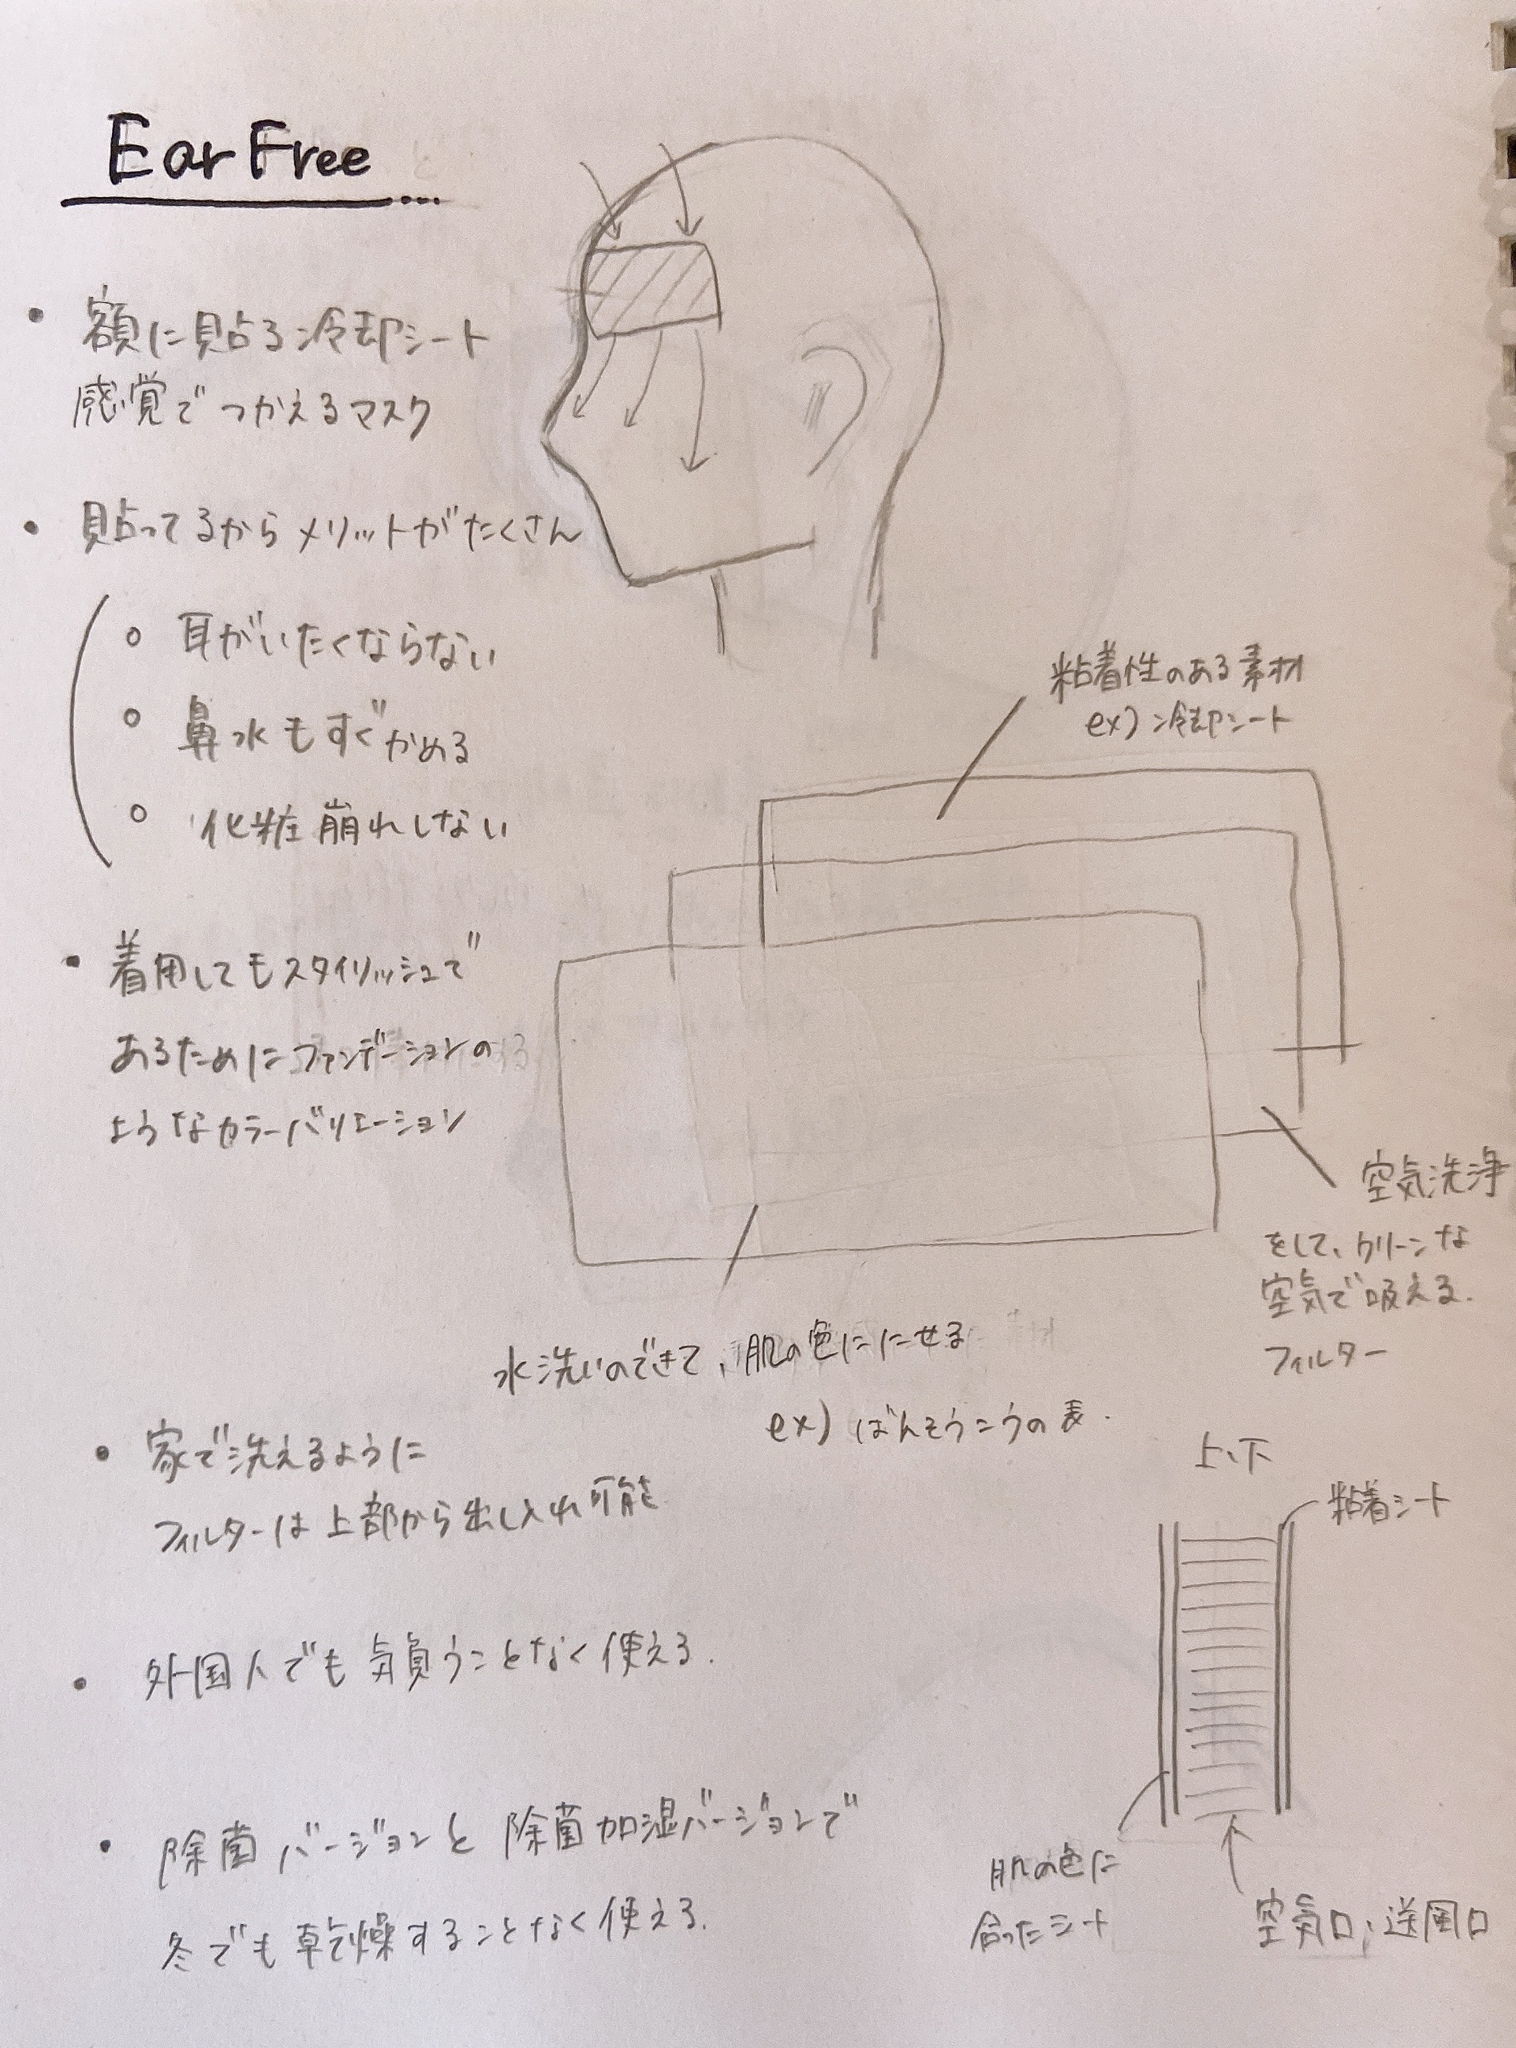 Ear Free
・額に貼る冷却シート
感覚でつかえるマスク
・貼ってるからメリットがたくさん
○ 耳がいたくならない
○ 鼻水もすぐかめる
○ 化粧崩れしない
粘着性のある素材
ex) 冷却シート
・着用してもスタイリッシュで
あるためにファンデーションの
ようなカラーバリエーション
空気洗浄
をして、クリーンな
空気で吸える.
フィルター
水洗いのできて、肌の色ににせる
ex) ばんそうこうの表.
・家で洗えるように
フィルターは上部から出し入れ可能
上、下
粘着シート
・外国人でも気負うことなく使える.
・除菌バージョンと除菌加湿バージョンで
冬でも乾燥することなく使える.
肌の色に
合ったシート
空気口、送風口